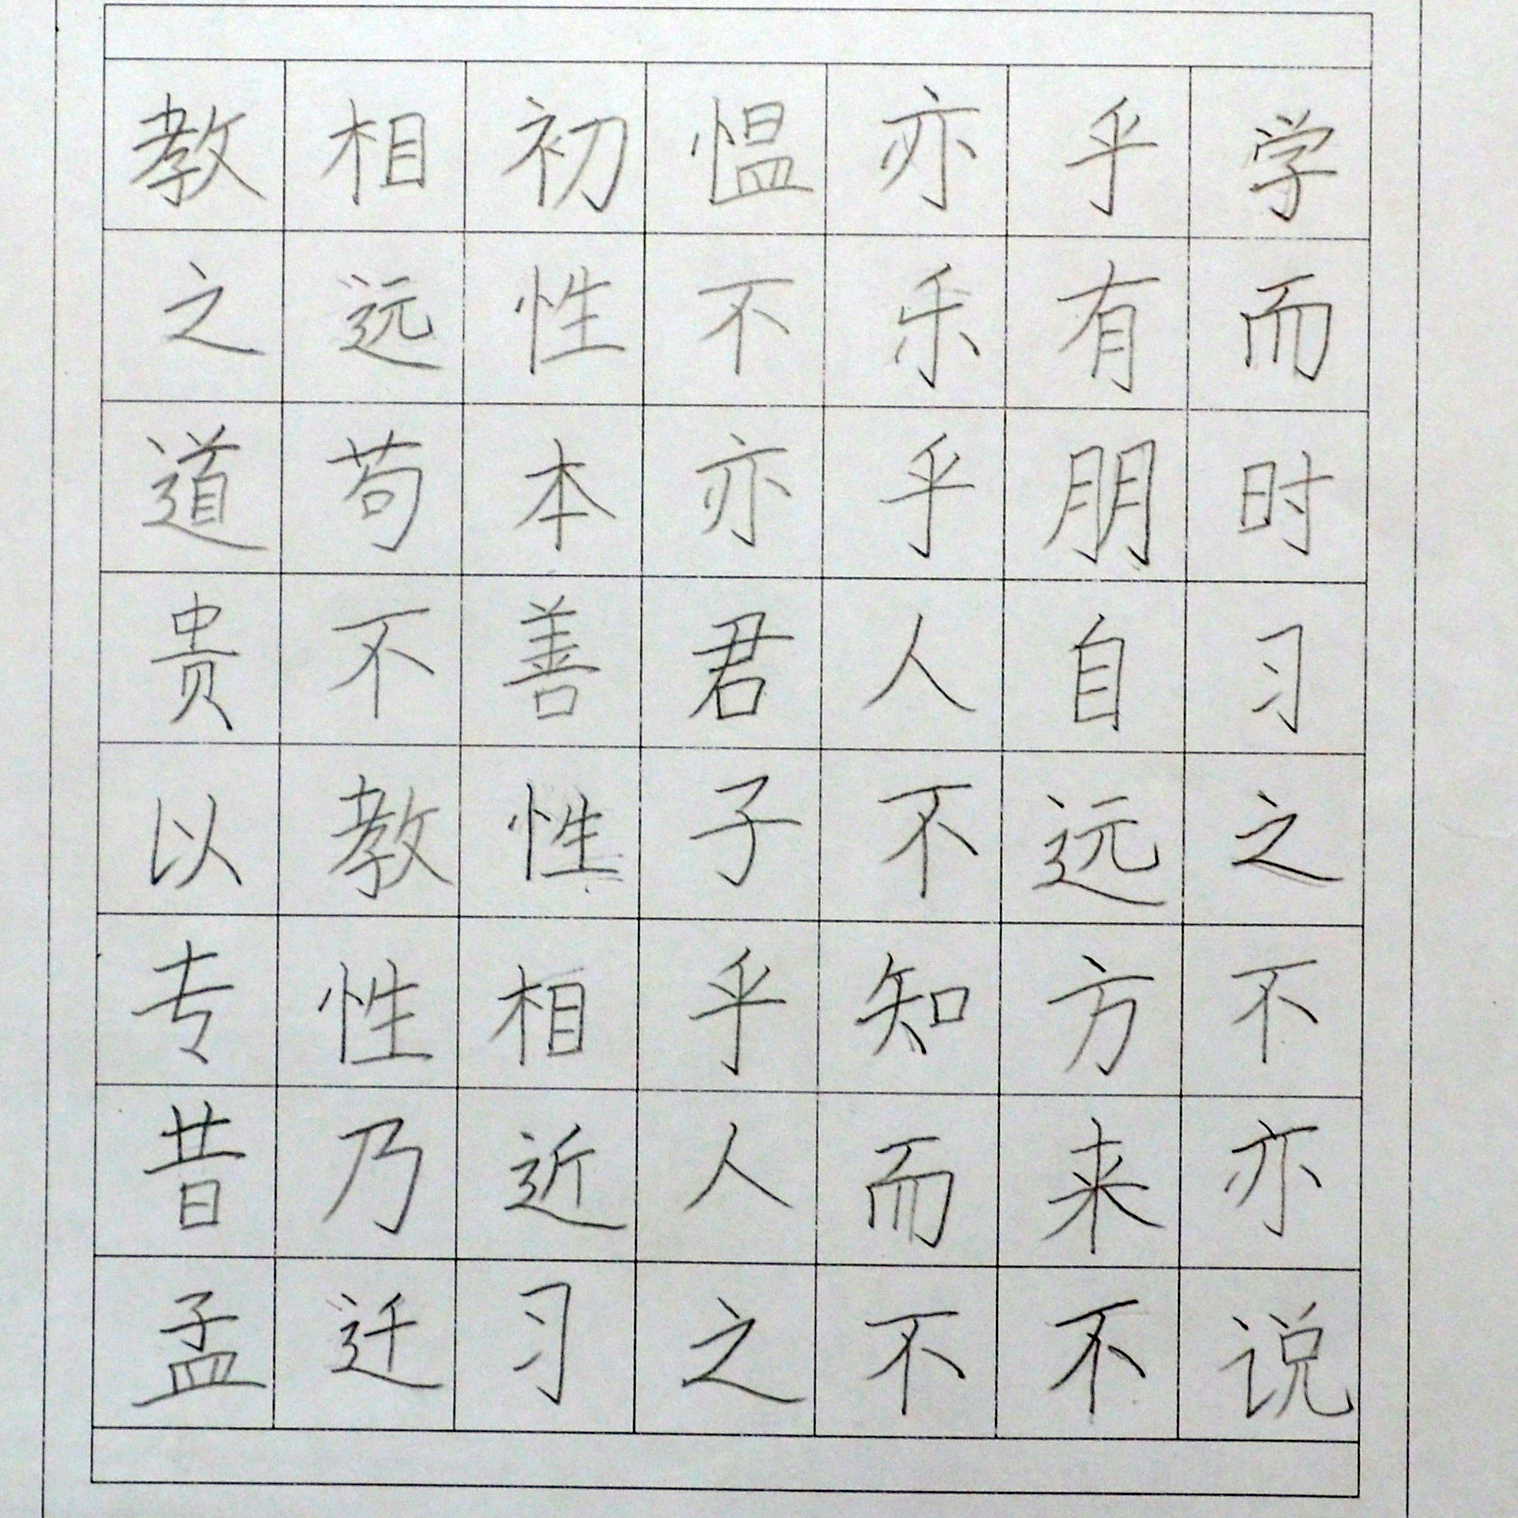 学而时习之不亦说
乎有朋自远方来不
亦乐乎人不知而不
愠不亦君子乎人之
初性本善性相近习
相远苟不教性乃迁
教之道贵以专昔孟